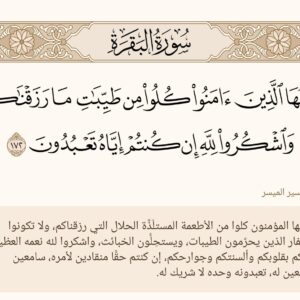 سُورَةُ البَقَرَةِ
ٱلَّذِينَ ءَامَنُواْ كُلُواْ مِن طَيِّبَٰتِ مَا
وَٱشْكُرُواْ لِلَّهِ إِن كُنتُمْ إِيَّاهُ تَعْبُدُونَ ١٧٢
الميسر
المؤمنون كلوا من الأطعمة المستلذَّة الحلال التي رزقناكم، ولا تكونوا
الذين يحرمون الطيبات، ويستحلُّون الخبائث، واشكروا لله نعمه
بقلوبكم وألسنتكم وجوارحكم، إن كنتم حقًّا منقادين لأمره، سامعين
له، تعبدونه وحده لا شريك له.